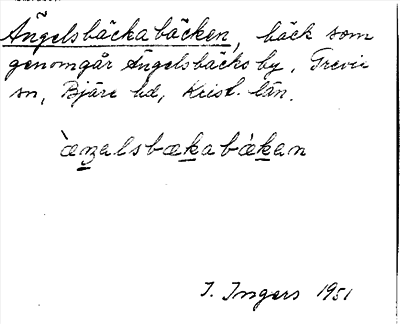 Ängelsbäckabäcken, bäck som
genomgår Ängelsbäcks by, Grevie
sn, Bjäre hd, Krist. län.
I. Ingers 1951